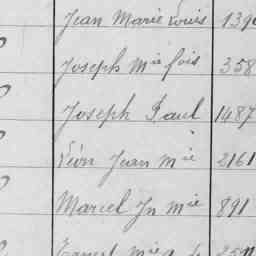 Jean Marie Louis 1390
Joseph Mie fois 358
Joseph Paul 1487
Léon Jean Mie 2161
Marcel Jn Mie 891
Ernest Mie